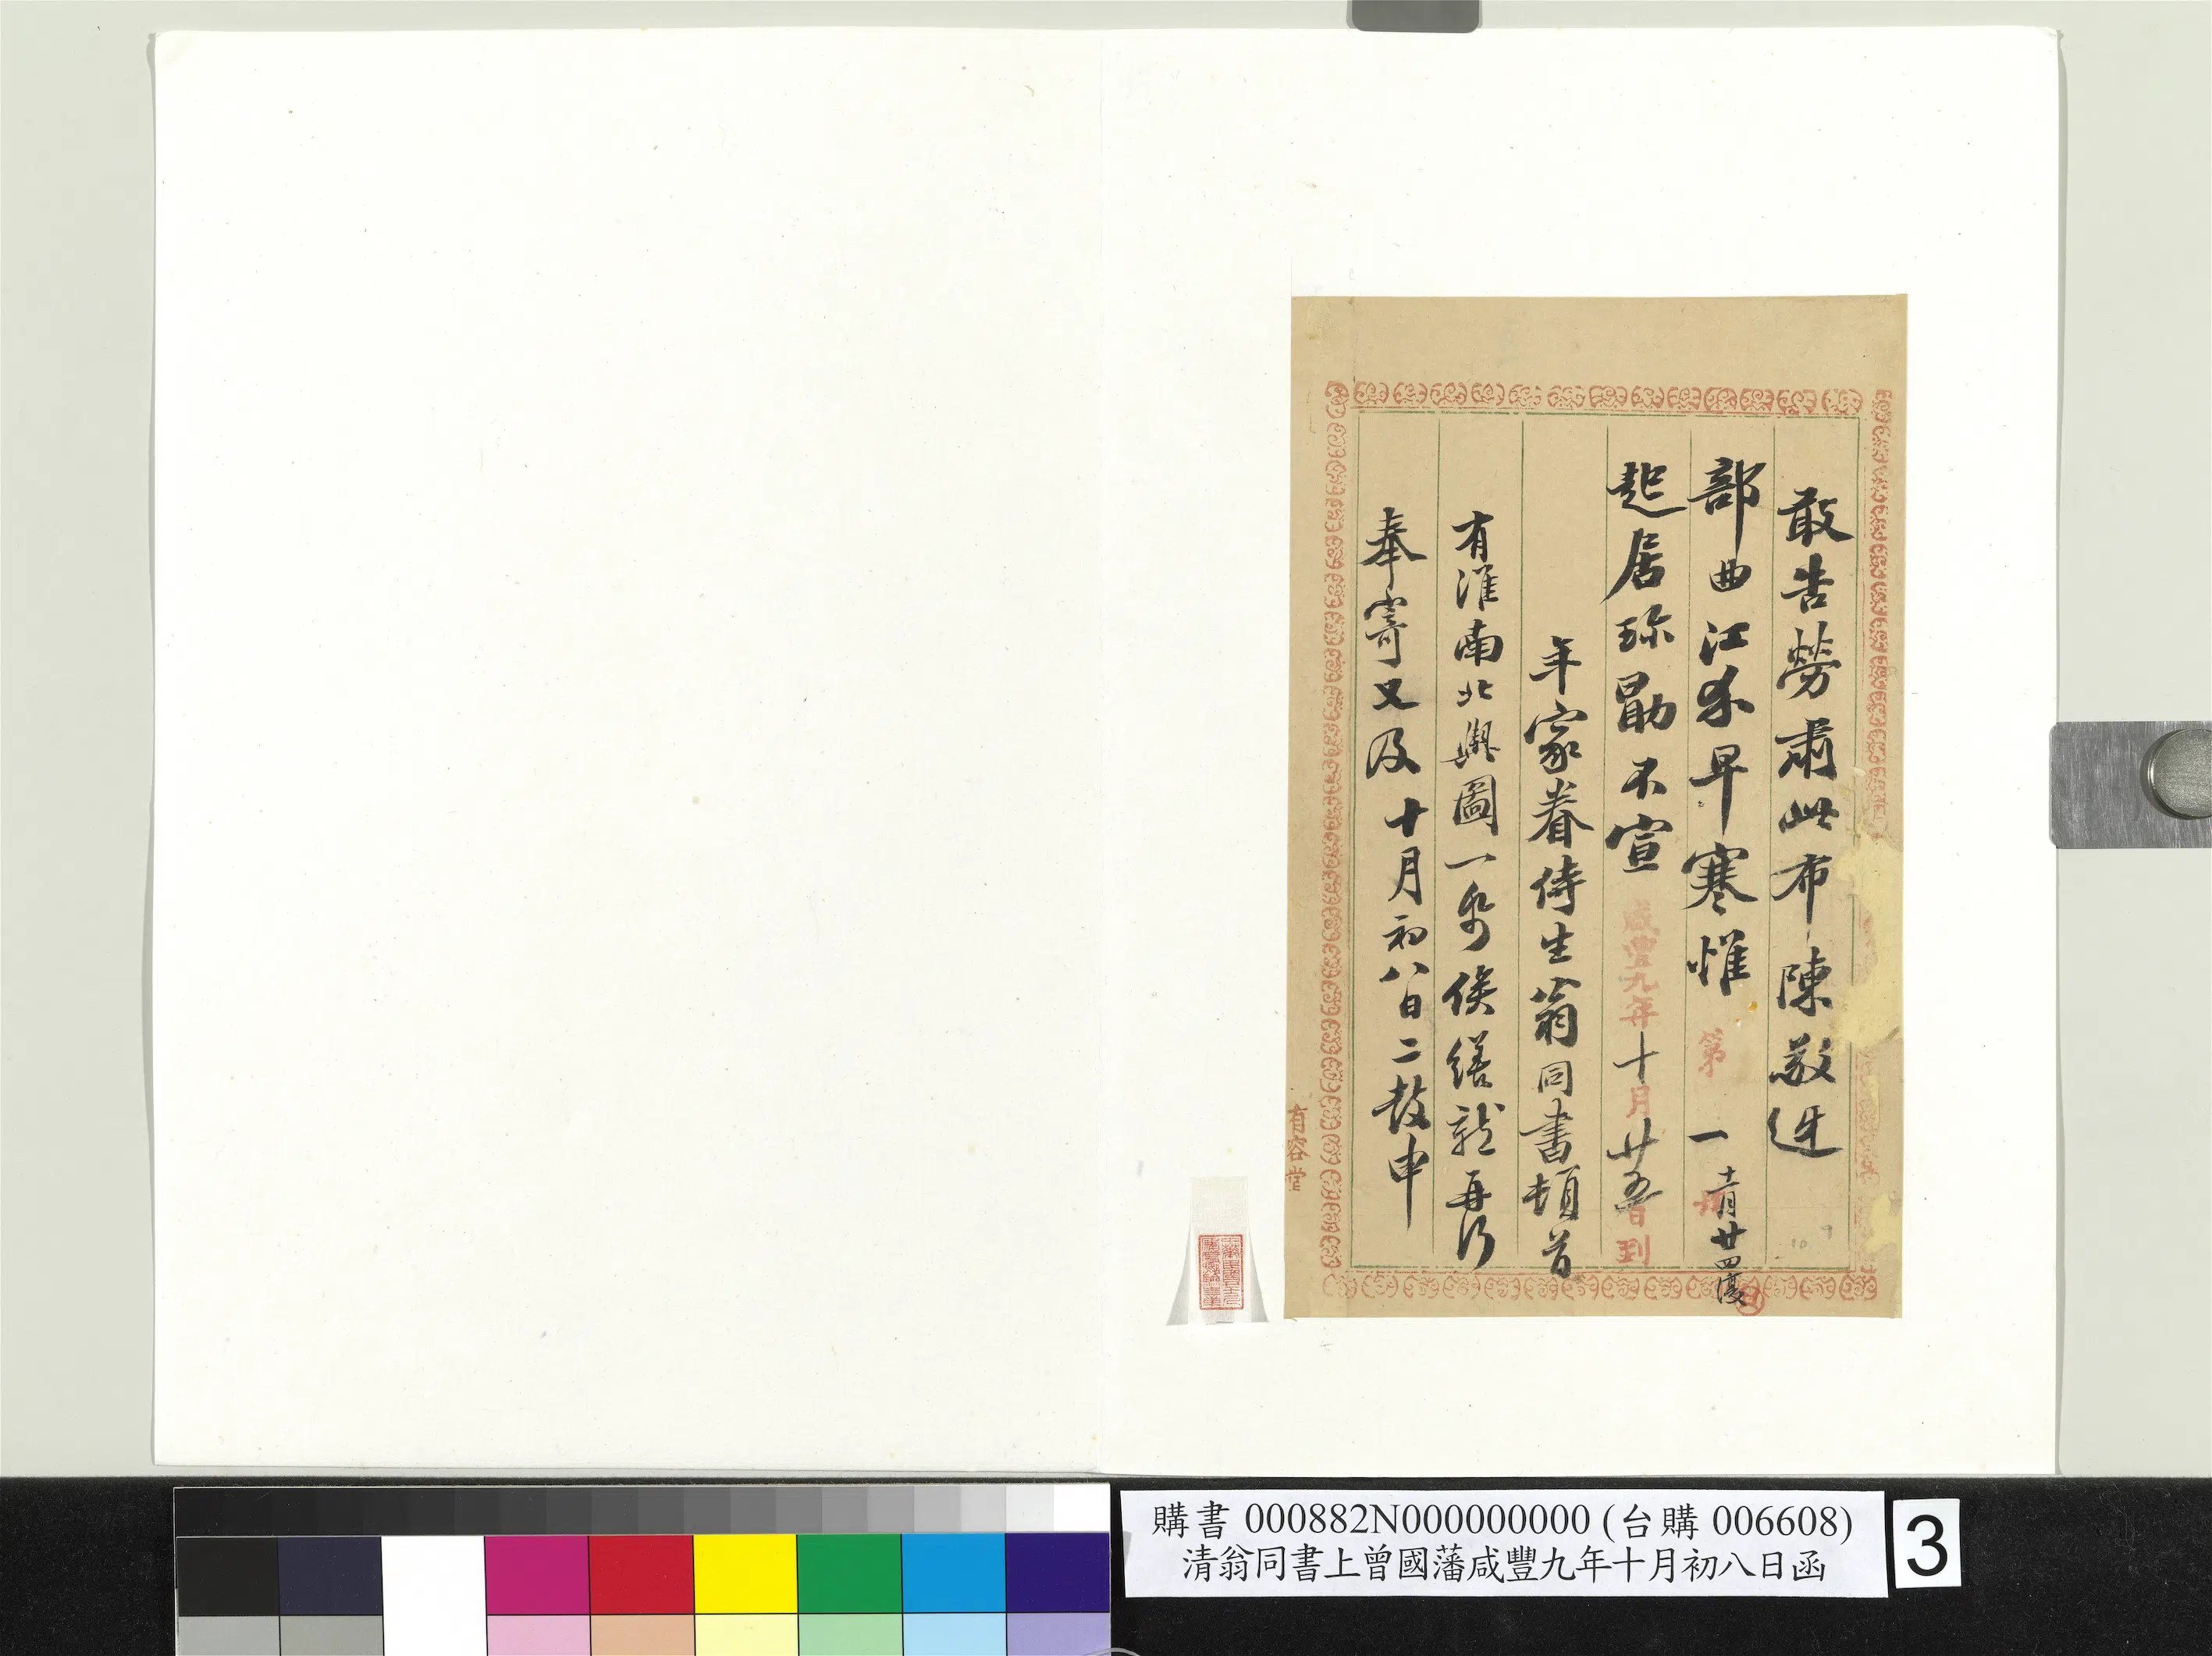 敢告勞肅此布陳敬迓
部曲江介早寒惟
起居珍勖不宣
年家眷侍生翁同書頓首
有淮南北輿圖一幣俟繕就再行
奉寄又及十月初八日二鼓申
第一
十一月廿四覆
咸豐九年十月廿五日到
有容堂
購書 000882N000000000 (台購 006608)
清翁同書上曾國藩咸豐九年十月初八日函
3